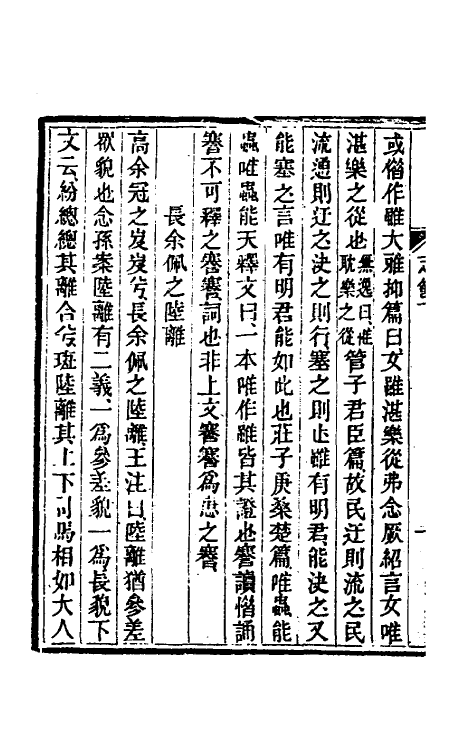 或借作雖大雅抑篇曰女雖湛樂從弗念厥紹言女唯
湛樂之從也無逸曰惟耽樂之從管子君臣篇故民迂則流之民
流通則迂之決之則行塞之則止雖有明君能決之又
能塞之言唯有明君能如此也莊子庚桑楚篇唯蟲能
蟲唯蟲能天釋文曰一本唯作雖皆其證也謇讀㥶誦
謇不可釋之謇謇詞也非上文謇謇為患之謇
長余佩之陸離
高余冠之岌岌兮長余佩之陸離王注曰陸離猶參差
眾貌也念孫案陸離有二義一為參差貌一為長貌下
文云紛總總其離合兮斑陸離其上下司馬相如大人